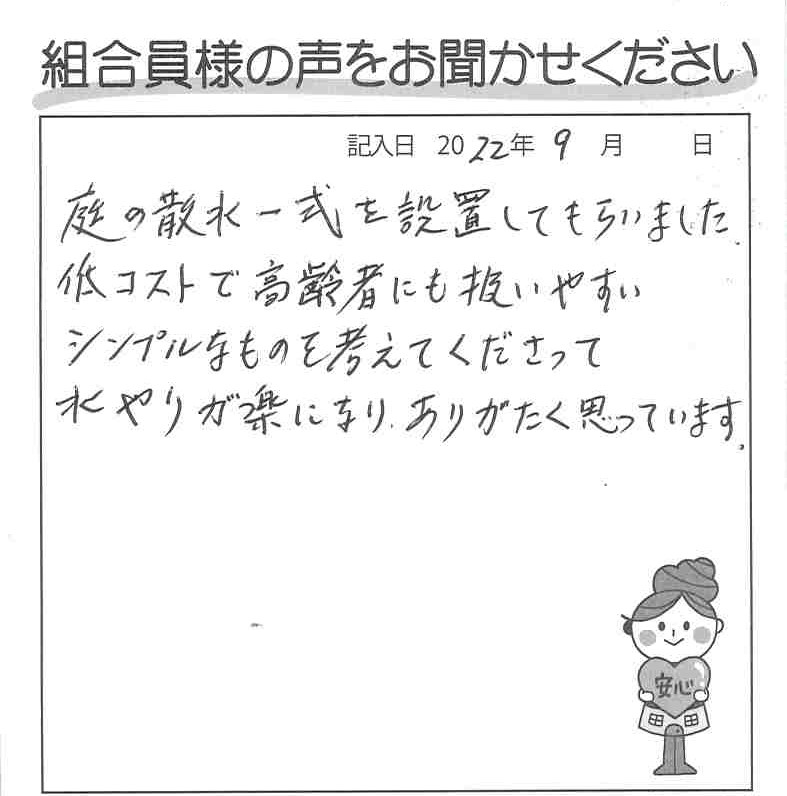 組合員様の声をお聞かせください
記入日 2022年 9月 日
庭の散水一式を設置してもらいました。
低コストで高齢者にも扱いやすい
シンプルなものを考えてくださって
水やりが楽になり、ありがたく思っています。
安心